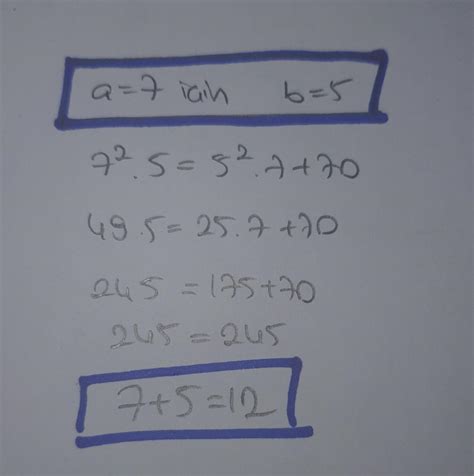 a=7 için b=5
7².5=5².7+70
49.5=25.7+70
245=175+70
245=245
7+5=12